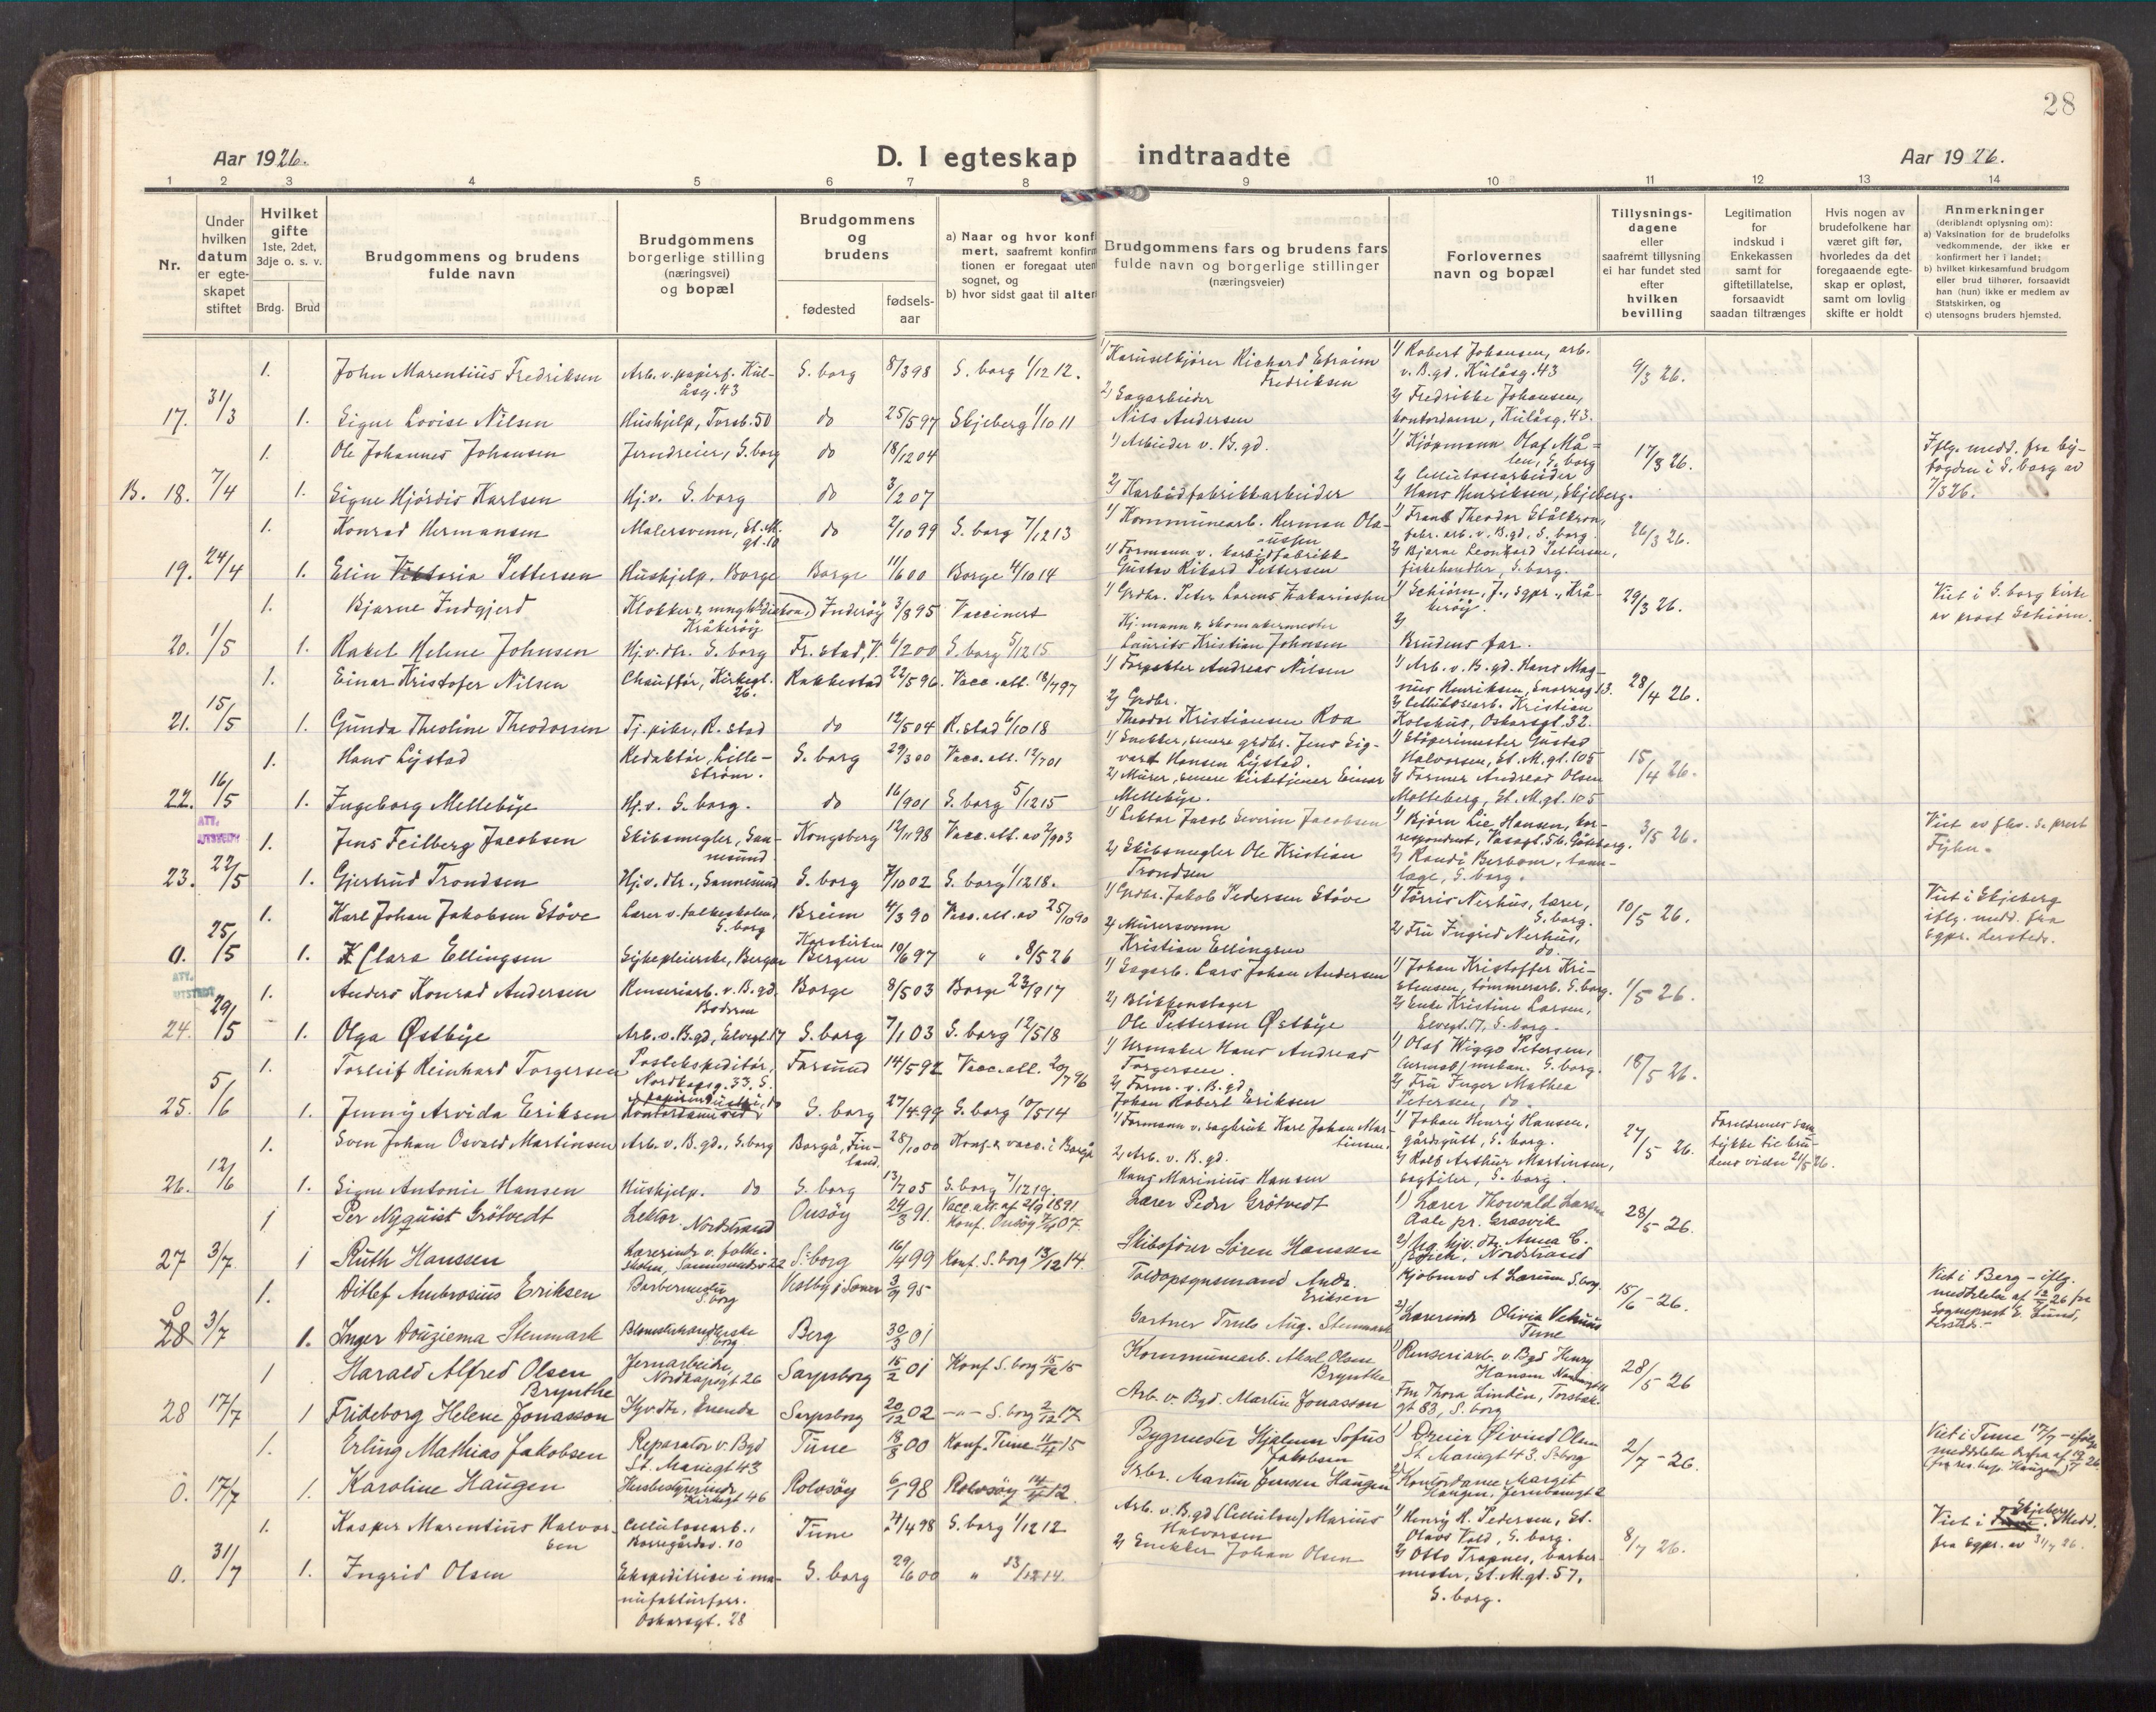 28
Aar 1926.
D. I egteskap indtraadte
Aar 1926.
1 2 3 4 5 6 7 8 9 10 11 12 13 14
Nr.
Under hvilken datum er egteskapet stiftet
Hvilket gifte 1ste, 2det, 3dje o. s. v.
Brdg. Brud
Brudgommens og brudens fulde navn
Brudgommens borgerlige stilling (næringsvei) og bopæl
Brudgommens og brudens
fødested
fødsels-aar
a) Naar og hvor konf
mert, saafremt konfirm
tionen er foregaat uten
sognet, og
b) hvor sidst gaat til alter
Brudgommens fars og brudens fars fulde navn og borgerlige stillinger (næringsveier)
Forlovernes navn og bopæl
Tillysnings-dagene eller saafremt tillysning ei har fundet sted efter hvilken bevilling
Legitimation for indskud i Enkekassen samt for giftetillatelse, forsaavidt saadan tiltrænges
Hvis nogen av brudefolkene har været gift før, hvorledes da det foregaaende egteskap er opløst, samt om lovlig skifte er holdt
Anmerkninger
(deriblandt oplysning om):
a) Vaksination for de brudefolks vedkommende, der ikke er konfirmert her i landet;
b) hvilket kirkesamfund brudgom eller brud tilhører, forsaavidt han (hun) ikke er medlem av Statskirken, og
c) utensogns bruders hjemsted.
1. John Marentius Fredriksen Arb. v. papirf. Kulåsg. 43 S. borg 8/3 98 S. borg 1/12 12. 1) Karuselkjører Richard Efraim Fredriksen 1) Robert Johansen, arb. v. B.gd. Kulåsg. 43 9/3 26.
17. 31/3 1. Signe Lovise Nilsen Hushjelp, Torsb. 50 do 25/5 97 Skjeberg 1/10 11 2) Sagarbeider Nils Andersen 2) Fredrikke Johansen, kontordame, Kulåsg. 43.
1. Ole Johannes Johansen Jerndreier, S. borg do 18/12 04 1) Arbeider v. B.gd. 1) Kjøpmann Olaf Målen, S. borg 17/3 26. Iflg. medd. fra byfogden i S. borg av 7/5 26.
B. 18. 7/4 1. Signe Hjørdis Karlsen Hj.v. S. borg do 3/2 07 2) Karbidfabrikkarbeider 2) Cellulosearbeider Hans Henriksen, Skjeberg.
1. Konrad Hermansen Malersvenn, St. M. gt. 10 do 2/10 99 S. borg 7/12 13 1) Kommunearb. Herman Olaussen 1) Frants Theodor Stålkron, fabr. arb. v. B.gd, S. borg. 26/3 26.
19. 24/4 1. Elin Viktoria Pettersen Hushjelp. Borge Borge 11/6 00 Borge 4/10 14 1) Formann v. karbidfabrikk Gustav Rikard Pettersen 2) Bjarne Leonhard Pettersen, fiskehandler, S. borg.
1. Bjarne Indgjerd Klokker & menighetsdiakon, Kråkerøy Inderøy 3/8 95 Vaccinert 1) Grdbr. Peter Lorens Zakariassen 1) Schiørn, J., sgpr., Kråkerøy 29/3 26. Viet i S. borg kirke av prost Schiørn.
20. 1/5 1. Rakel Helene Johnsen Hj.v.dtr. S. borg Fr. stad, V. 6/2 00 S. borg 5/12 15 Hj. mann & skomakermester Laurits Kristian Johnsen 2) Brudens far.
1. Einar Kristofer Nilsen Chauffør, Kirkegt. 26. Rakkestad 22/5 96. Vacc. att. 18/7 97 1) Forpakter Andreas Nilsen 1) Arb. v. B.gd. Hans Magnus Henriksen, Snorresg 13. 28/4 26.
21. 15/5 1. Gunda Theoline Theodorsen Tj. pike, R. stad do 12/5 04 R. stad 6/10 18 2) Grdbr. Theodor Kristiansen Roa 2) Cellulosearb. Kristian Kolshus, Oskarsgt. 32.
1. Hans Lystad Redaktør, Lillestrøm. S. borg 29/3 00 Vacc. att. 12/7 01 1) Snekker, senere grdbr. Jens Sigvart Hansen Lystad. 1) Støperimester Gustad Halvorsen, St. M. gt. 105 15/4 26.
22. 16/5 1. Ingeborg Mellebye Hj.v. S. borg. do 16/9 01 S. borg 5/12 15 2) Murer, senere kirketjener Einar Mellebye. 2) Former Andreas Olsen Molteberg, St. M. gt. 105
ATT. UTSTEDT
1. Jens Feilberg Jacobsen Skibsmegler, Sannesund Kongsberg 12/11 98 Vacc. att. av 2/9 03 1) Lektor Jacob Severin Jacobsen 1) Bjørn Lie Hansen, korrespondent, Vasagt. 5b. Göteborg. 3/5 26. Viet av fhv. s. prest Fyhn.
23. 22/5 1. Gjertrud Trondsen Hj.v.dtr., Sannesund S. borg 7/10 02 S. borg 1/12 18. 2) Skibsmegler Ole Kristian Trondsen 2) Randi Berbom, tannlæge, S. borg.
1. Karl Johan Jakobsen Støve Lærer v. folkeskolen, S. borg Breim 4/3 90 Vacc. att. av 25/10 90 1) Grdbr. Jakob Pedersen Støve 1) Torris Nerhus, lærer, S. borg. 10/5 26. Viet i Skjeberg iflg. medd. fra sgpr. dersteds.
0. 25/5 1. Clara Ellingsen Sykepleierske, Bergen Korskirken Bergen 19/6 97 " " 8/5 26 2) Murersvenn Kristian Ellingsen 2) Fru Ingrid Nerhus, do.
ATT. UTSTEDT
1. Anders Konrad Andersen Renseriarb. v. B.gd. Bodsren Borge 8/5 03 Borge 23/9 17 1) Sagarb. Lars Johan Andersen 1) Johan Kristoffer Kristensen, tømmerarb. S. borg. 1/5 26.
24. 29/5 1. Olga Østbye Arb. v. B.gd, Elvegt. 17 S. borg 7/1 03 S. borg 12/5 18 2) Blikkenslager Ole Pettersen Østbye 2) Enke Kristine Larsen, Elvegt. 17, S. borg.
1. Torleif Reinhard Torgersen Postekspeditør, Nordkapsg. 33. S. Farsund 14/5 92 Vacc. att. 20/7 96 1) Urmaker Hans Andreas Torgersen. 1) Olaf Wiggo Petersen, S. borg. 18/5 26.
25. 5/6 1. Jenny Arvida Eriksen S. borg 27/4 99 S. borg 10/5 14 2) Form. v. B.gd. Johan Robert Eriksen 2) Fru Inger Mathea Petersen, do.
1. Sven Johan Osvald Martinsen Arb. v. B.gd., S. borg Borgå, Finland. 28/10 00 Konf. & vacc. i Borgå 1) Formann v. sagbruk Karl Johan Martinsen. 1) Johan Henry Hansen, gårdsgutt, S. borg. 27/5 26. Foreldrenes samtykke til brudens vielse 21/5 26.
26. 12/6 1. Signe Antonie Hansen Hushjelp. do S. borg 13/7 05 S. borg 7/12 19. 2) Arb. v. B.gd. Hans Marinius Hansen 2) Rolf Arthur Martinsen, sagfiler, S. borg.
1 Per Nyquist Grötvedt Lektor Nordstrand Onsöy 24/3 91. Vacc. att. af 2/9 1891 Konf. Onsöy 07 Lærer Peder Grötvedt 1) Lærer Thorvald Larsen Aale pr. Græsvik 28/5-26.
27 3/7 1 Ruth Hanssen Lærerinde v. folkeskolen, Sannesundsv 22 S. borg 16/4 99 Konf. S. borg 13/12 14. Skibsfører Søren Hanssen 2) hjv. dtr. Anna C. Nordstrand
1. Ditlef Ambrosius Eriksen Barbermester S. borg Holby i Soner 3/9 95 Toldopsynsmand Andr. Eriksen Kjøbmd A Lærum S. borg. 15/6-26. Viet i Berg - iflg. meddelelse af 12/7 26 fra Sogneprest E. Lund, dersteds.-
0 28 3/7 1. Inger Douziema Stenmark Blomsterhandlerske S. borg Berg 30/3 01 Gartner Truls Aug. Stenmark 2) Lærerinde Olivia Vehuus Tune
1 Harald Alfred Olsen Brynthe Jernarbeider, Nordkapsgt 26 Sarpsborg 15/2 01 Konf. S. borg 15 Kommunearb. Aksel Olsen Brynthe 1) Renseriarb. v. Bgd Henry Hansen 28/5 26
28 17/7 1 Frideborg Helene Jonasson Hjv.dtr., Enenda Sarpsborg 20/12 02 -"- S. borg 2/12 17 Arb. v. Bgd. Martin Jonasson Fru Thora Lindèn, Torsbækgt 83, S. borg
1. Erling Mathias Jakobsen Reparatør v. Bgd St. Mariegt 43 Tune 18/8 00 Konf. Tune 15 Bygmester Hjalmar Sofus Jakobsen 1) Dreier Øivind Olsen St. Mariegt 43. S. borg 2/7-26. Viet i Tune 17/7 - ifølge meddelelse derfra af 19/7 26
0. 17/7 1. Karoline Haugen Husbestyrerinde Kirkegt 46 Rolvsøy 6/1 98 Rolvsøy 12. Grbr. Martin Jensen Haugen 2) Kontordame Margit Haugen, Jernbanegt 2
1. Kasper Marentius Halvorsen Cellulosearb., Borregårdsv. 10 Tune 4/4 98 S. borg 1/12 12 Arb. v. B.gd (Cellulosen) Marius Halvorsen 1) Henry R. Pedersen, St. Olavs Vold, S. borg. 8/7 26. Viet i Skjeberg. Medd. fra sgpr. av 31/7 26.
0. 31/7 1. Ingrid Olsen Ekspeditrise i manufakturforr. Oskarsgt. 28 S. borg 29/6 00 " 13/12 14. 2) Snekker Johan Olsen 2) Otto Trapnes, barbermester, St. M. gt. 57, S. borg.